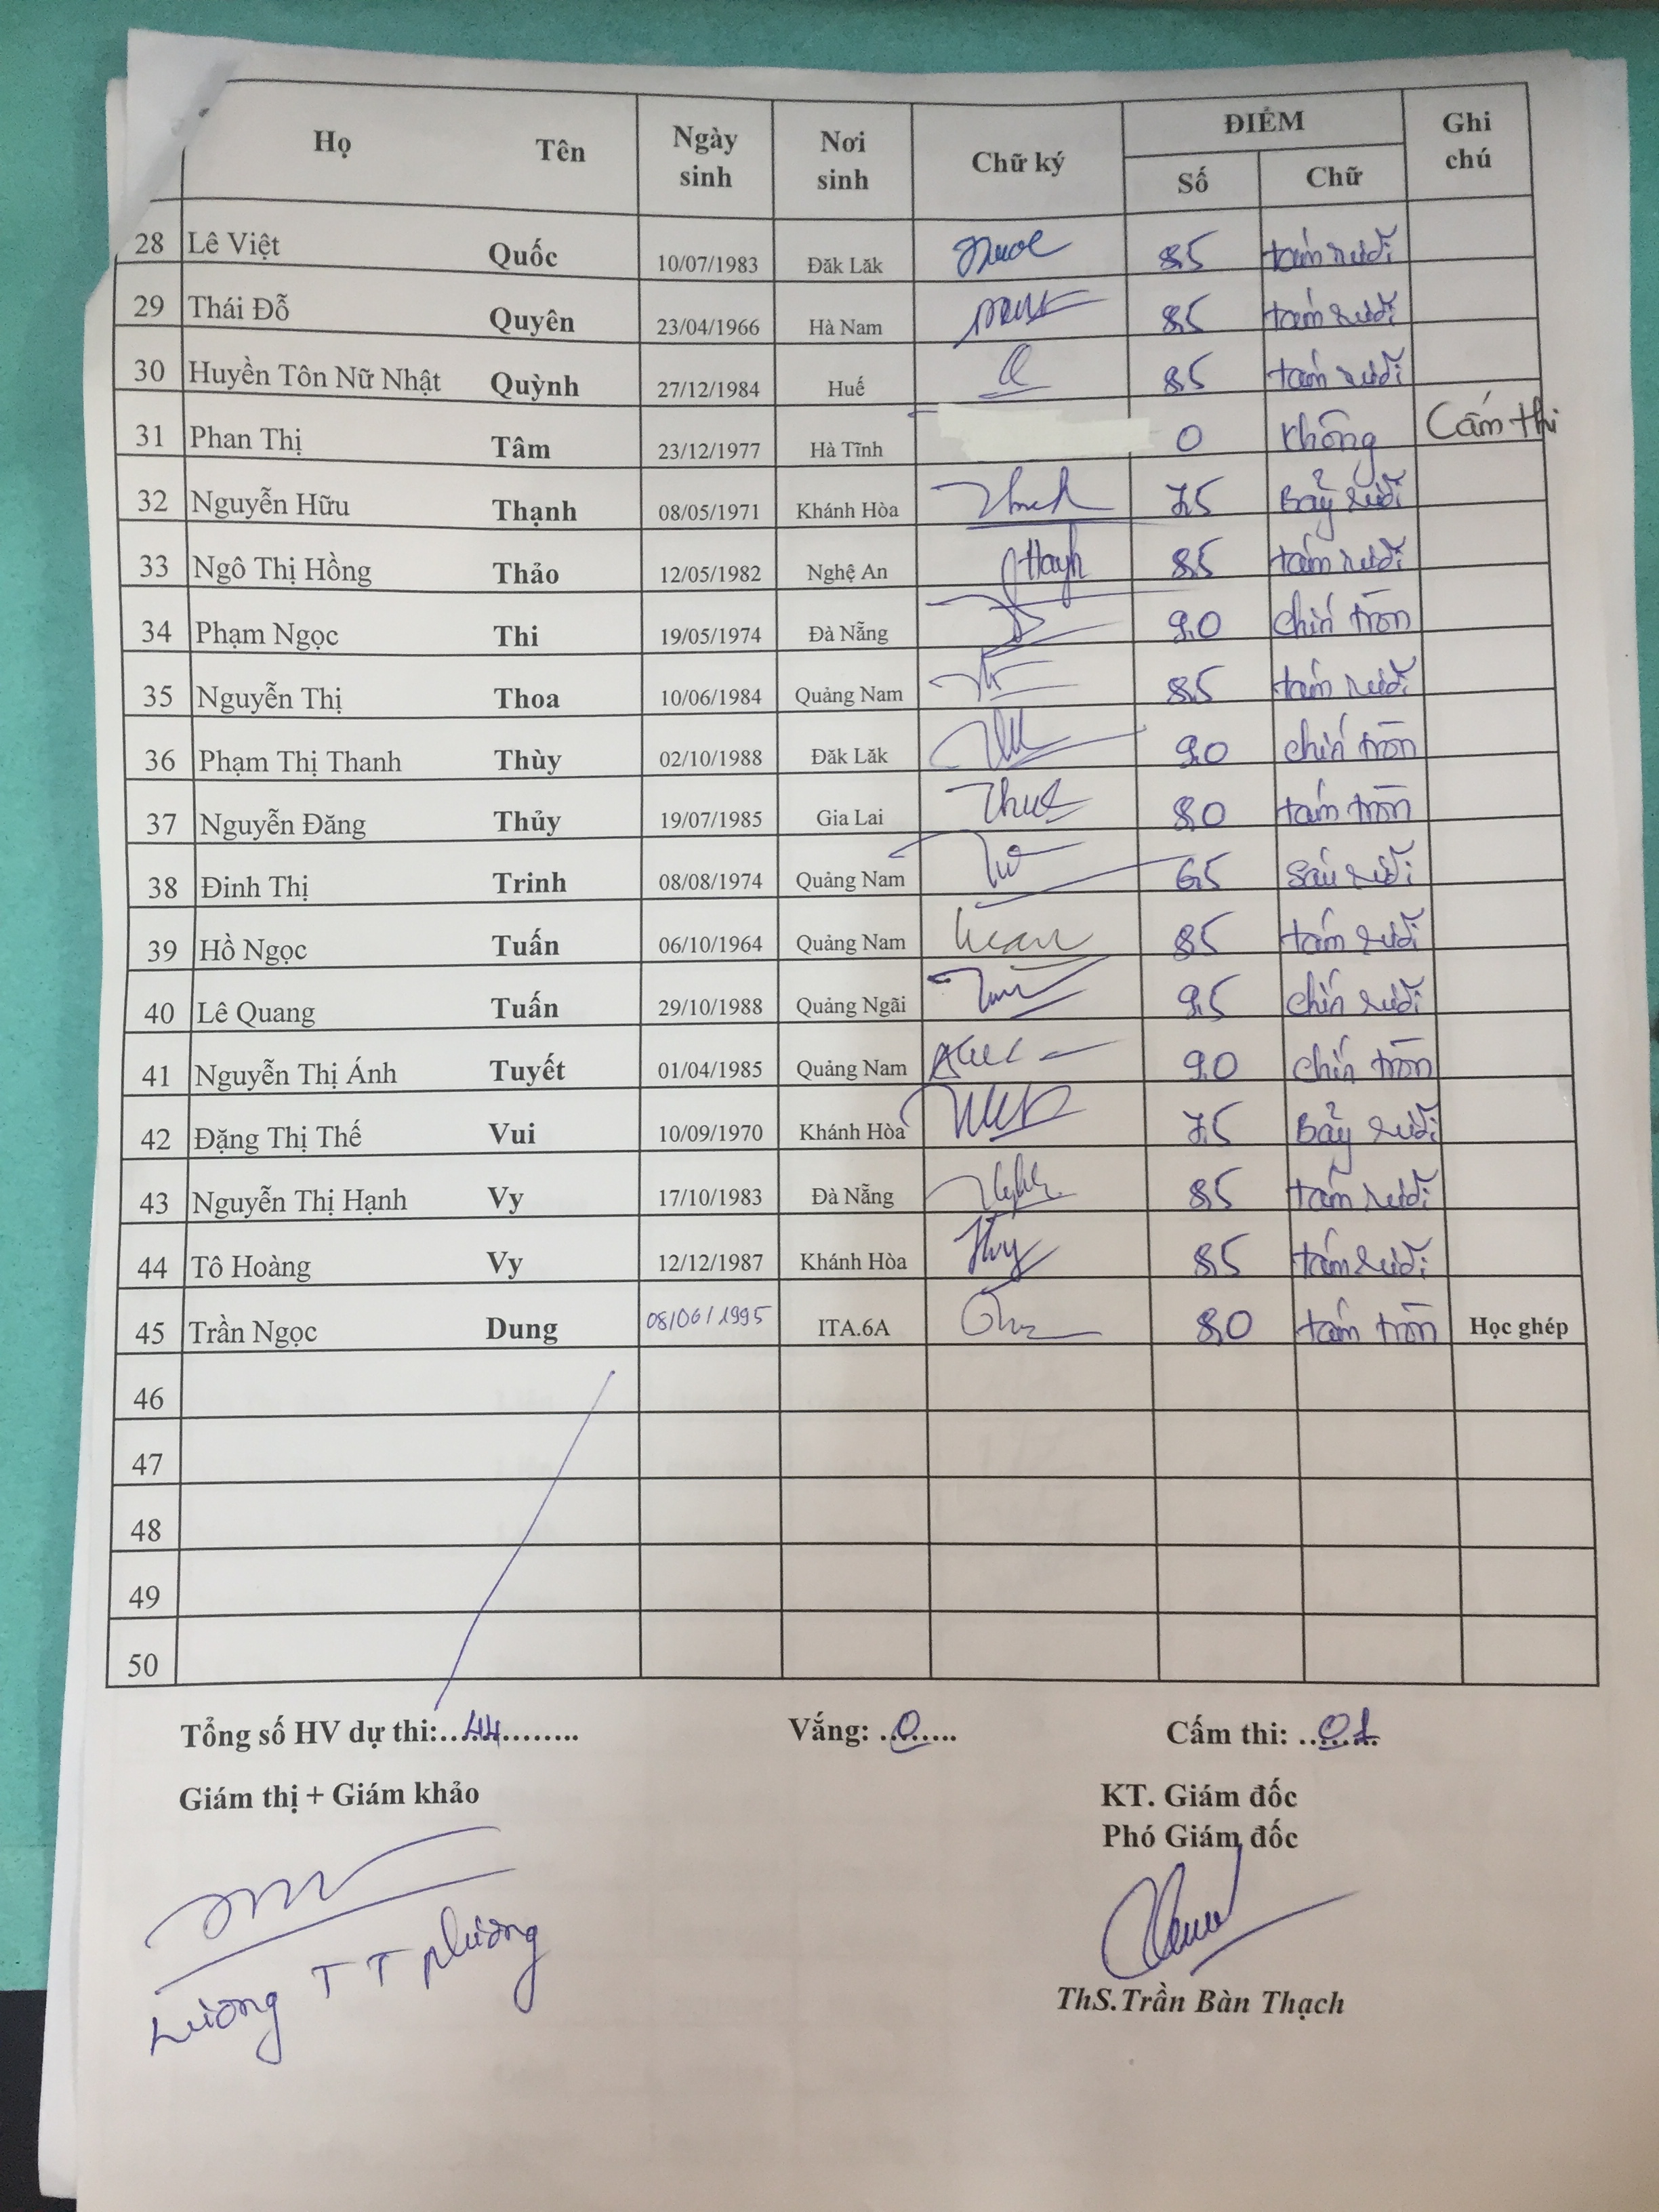 Họ Tên Ngày sinh Nơi sinh Chữ ký ĐIỂM Ghi chú
Số Chữ
28 Lê Việt Quốc 10/07/1983 Đăk Lăk 8,5 tám rưỡi
29 Thái Đỗ Quyên 23/04/1966 Hà Nam 8,5 tám rưỡi
30 Huyền Tôn Nữ Nhật Quỳnh 27/12/1984 Huế 8,5 tám rưỡi
31 Phan Thị Tâm 23/12/1977 Hà Tĩnh 0 không Cấm thi
32 Nguyễn Hữu Thạnh 08/05/1971 Khánh Hòa 7,5 Bảy rưỡi
33 Ngô Thị Hồng Thảo 12/05/1982 Nghệ An 8,5 tám rưỡi
34 Phạm Ngọc Thi 19/05/1974 Đà Nẵng 9,0 chín tròn
35 Nguyễn Thị Thoa 10/06/1984 Quảng Nam 8,5 tám rưỡi
36 Phạm Thị Thanh Thùy 02/10/1988 Đăk Lăk 9,0 chín tròn
37 Nguyễn Đăng Thủy 19/07/1985 Gia Lai 8,0 tám tròn
38 Đinh Thị Trinh 08/08/1974 Quảng Nam 6,5 sáu rưỡi
39 Hồ Ngọc Tuấn 06/10/1964 Quảng Nam 8,5 tám rưỡi
40 Lê Quang Tuấn 29/10/1988 Quảng Ngãi 9,5 chín rưỡi
41 Nguyễn Thị Ánh Tuyết 01/04/1985 Quảng Nam 9,0 chín tròn
42 Đặng Thị Thế Vui 10/09/1970 Khánh Hòa 7,5 Bảy rưỡi
43 Nguyễn Thị Hạnh Vy 17/10/1983 Đà Nẵng 8,5 tám rưỡi
44 Tô Hoàng Vy 12/12/1987 Khánh Hòa 8,5 tám rưỡi
45 Trần Ngọc Dung 08/06/1995 ITA.6A 8,0 tám tròn Học ghép
46
47
48
49
50
Tổng số HV dự thi:...44........ Vắng: ..0..... Cấm thi: ..01..
Giám thị + Giám khảo KT. Giám đốc
Phó Giám đốc
Lương T T Phương
ThS.Trần Bàn Thạch